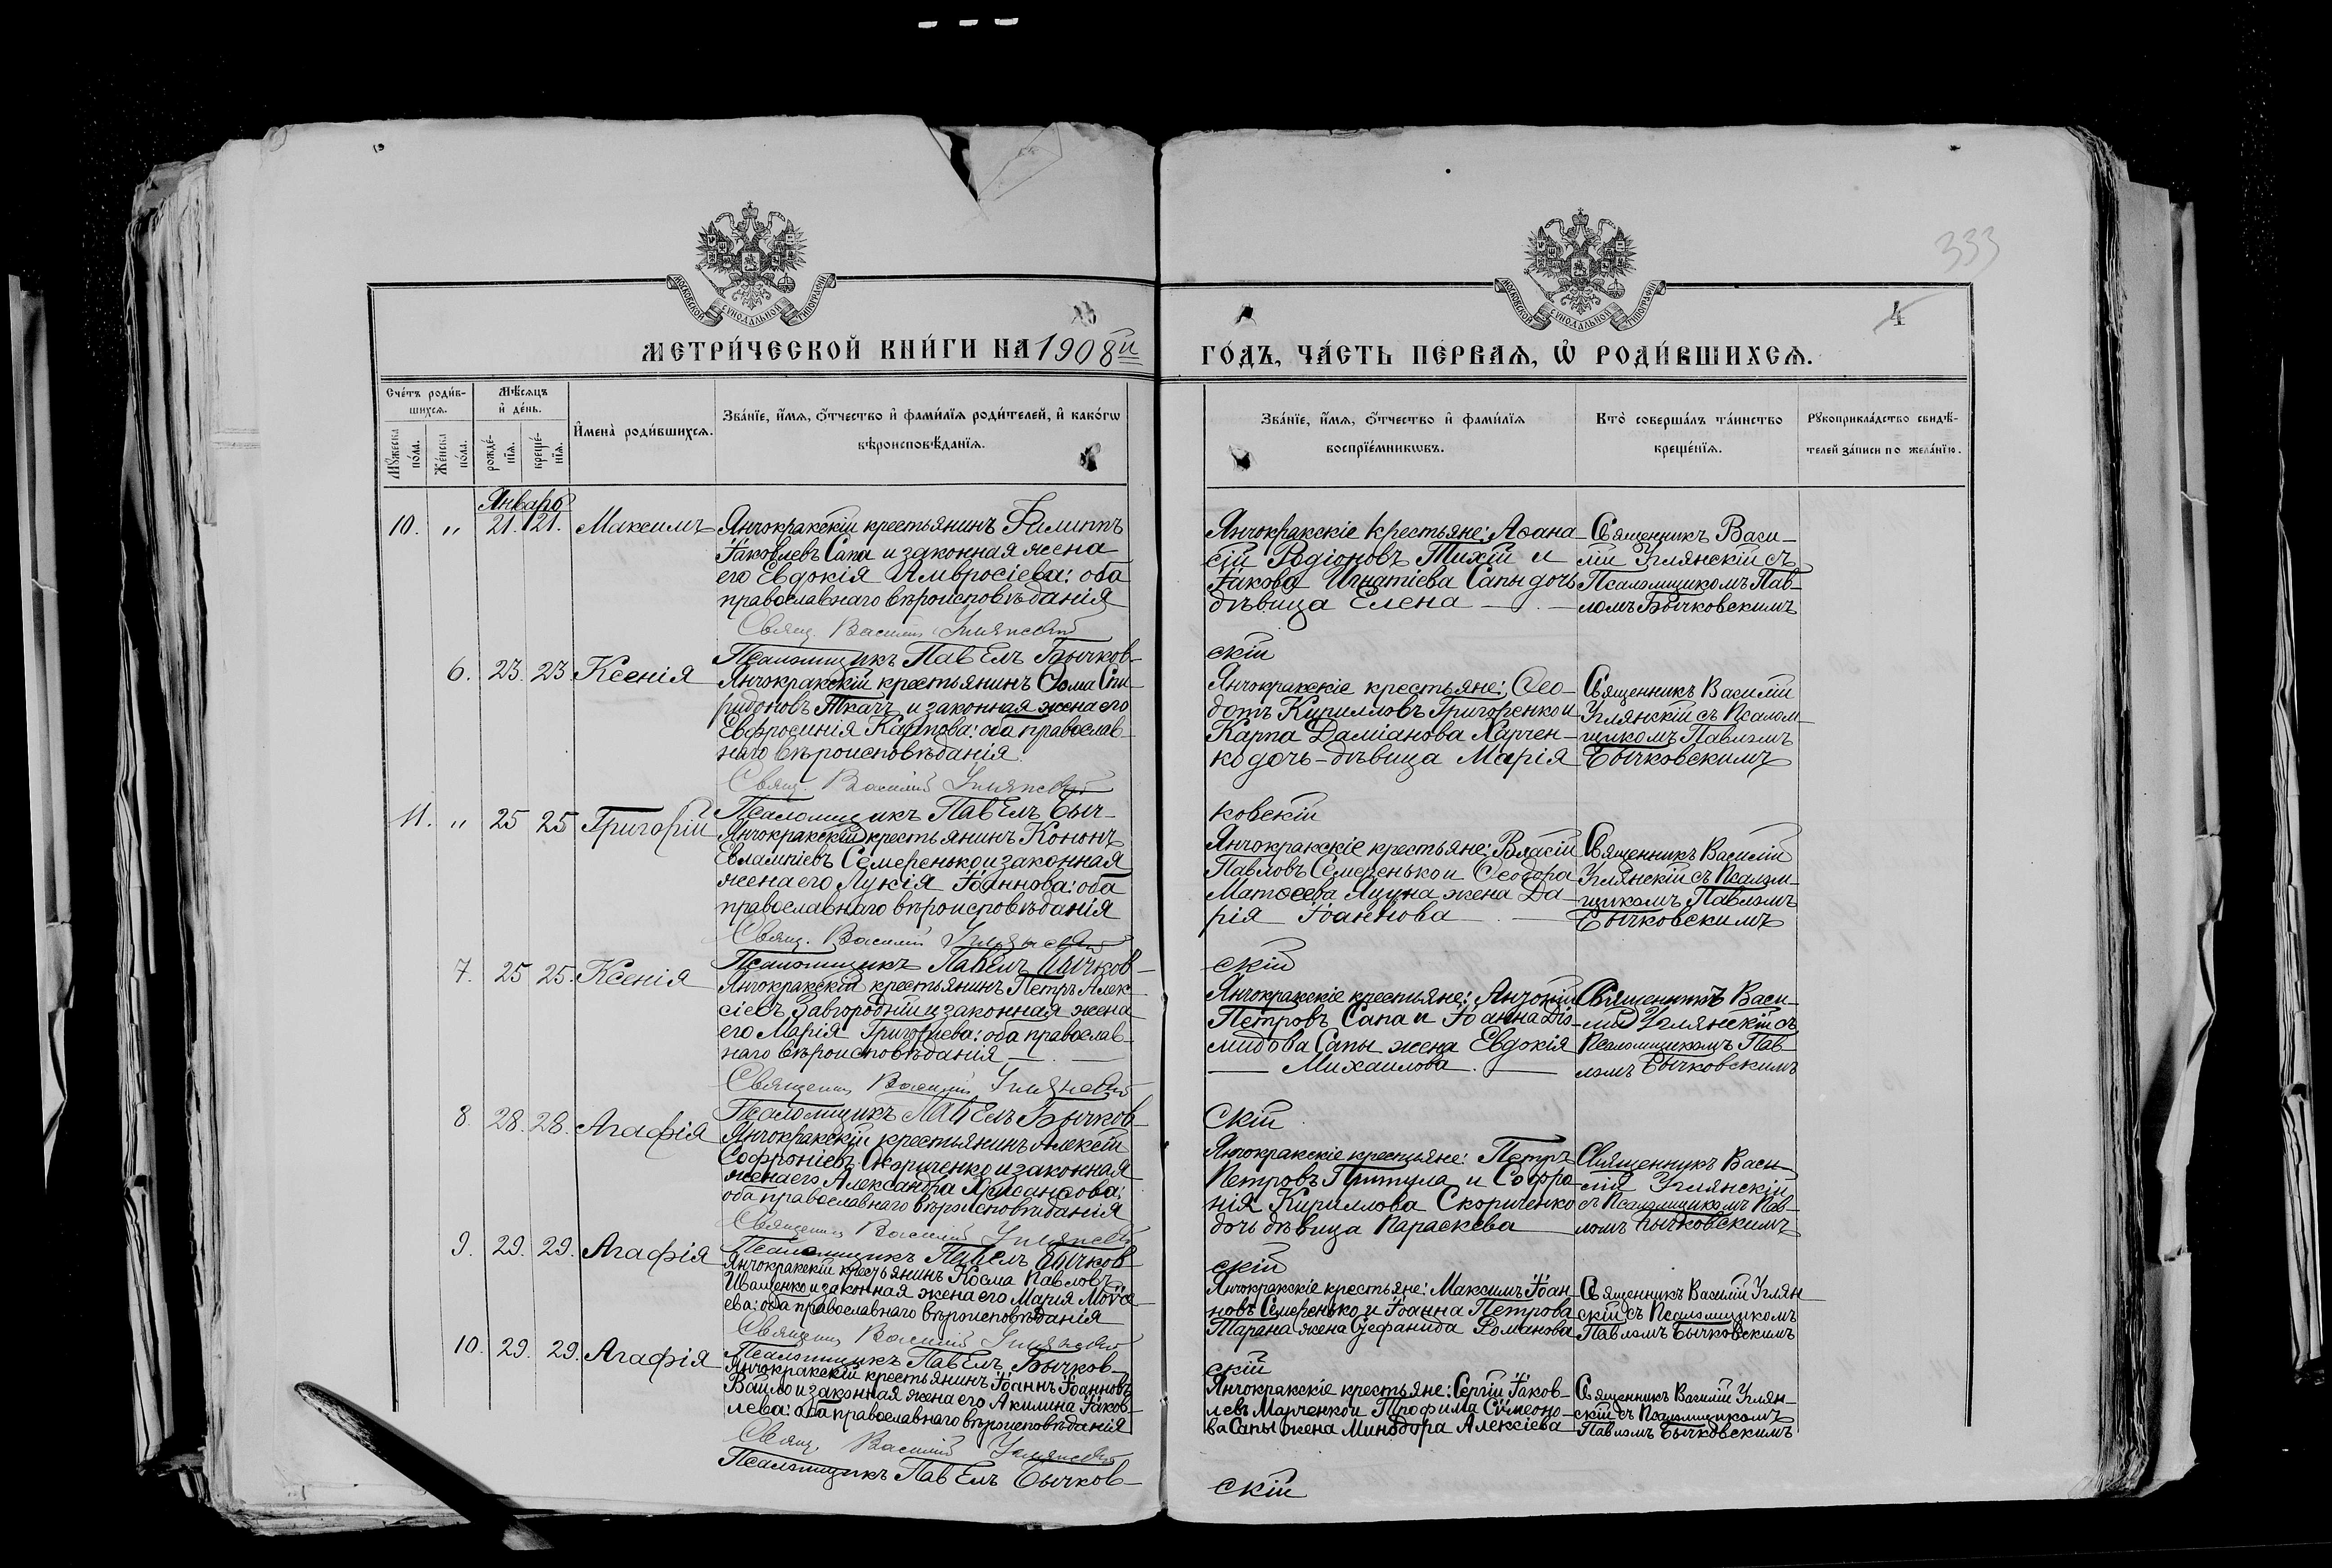 333
4
МОСКОВСКОЙ СѴНОДАЛЬНОЙ ТИПОГРАФІИ
МОСКОВСКОЙ СѴНОДАЛЬНОЙ ТИПОГРАФІИ
МЕТРИ́ЧЕСКОЙ КНИ́ГИ НА 1908й
ГО́ДЪ, ЧА́СТЬ ПЕ́РВАѦ, Ѡ҆ РОДИ́ВШИХСѦ.
Сче́тъ роди́в-
шихсѧ.
Мꙋжеска по́ла.
Же́нска по́ла.
Мѣ́сѧцъ
и҆ де́нь.
рожде́-
нїѧ.
креще́-
нїѧ.
И҆мена̀ роди́вшихсѧ.
Зва́нїе, и҆́мѧ, ѻ҆́тчество и҆ фами́лїѧ роди́телей, и҆ како́гѡ
вѣроисповѣ́данїѧ.
Зва́нїе, и҆́мѧ, ѻ҆́тчество и҆ фами́лїѧ
воспрїе́мникѡвъ.
Кто̀ соверша́лъ та́инство
креще́нїѧ.
Рꙋкоприкла́дство свидѣ́-
телей за́писи по жела́нїю.
Январь
10. „ 21. 21. Максимъ
Янчокракскій крестьянинъ Филиппъ
Іаковлевъ Сапа и законная жена
его Евдокія Амвросіева: оба
православнаго вѣроисповѣданія
Свящ. Василій Углянскій
Псаломщикъ Павелъ Бычков-
Янчокракскіе крестьяне: Аѳана-
сій Родіоновъ Тихій и
Іакова Игнатіева Сапы дочь
дѣвица Елена
скій
Священникъ Васи-
лій Углянскій съ
Псаломщикомъ Пав-
ломъ Бычковскимъ
6. 23. 23. Ксенія
Янчокракскій крестьянинъ Ѳома Спи-
ридоновъ Ткачъ и законная жена его
Евфросинія Карпова: оба православ-
наго вѣроисповѣданія
Свящ. Василій Углянскій
Псаломщикъ Павелъ Быч-
Янчокракскіе крестьяне: Ѳео-
дотъ Кирилловъ Григоренко и
Карпа Даміанова Харчен-
ко дочь-дѣвица Марія
ковскій
Священникъ Василій
Углянскій съ Псалом-
щикомъ Павломъ
Бычковскимъ
11. „ 25 25 Григорій
Янчокракскій крестьянинъ Кононъ
Евлампіевъ Семеренько и законная
жена его Лукія Іоаннова: оба
православнаго вѣроисповѣданія
Свящ. Василій Углянскій
Псаломщикъ Павелъ Бычков-
Янчокракскіе крестьяне: Власій
Павловъ Семеренько и Ѳеодора
Матѳеева Яцуна жена Да-
рія Іоаннова
скій
Священникъ Василій
Углянскій съ Псалом-
щикомъ Павломъ
Бычковскимъ
7. 25 25. Ксенія
Янчокракскій крестьянинъ Петръ Алек-
сіевъ Завгородній и законная жена
его Марія Григоріева: оба православ-
наго вѣроисповѣданія
Священникъ Василій Углянскій
Псаломщикъ Павелъ Бычков-
Янчокракскіе крестьяне: Антоній
Петровъ Сапа и Іоанна Діо-
мидова Сапы жена Евдокія
Михаилова
скій
Священникъ Васи-
лій Углянскій съ
Псаломщикомъ Пав-
ломъ Бычковскимъ
8. 28. 28. Агафія
Янчокракскій крестьянинъ Алексій
Софроніевъ Скориченко и законная
жена его Александра Хрисанѳова:
оба православнаго вѣроисповѣданія
Священникъ Василій Углянскій
Псаломщикъ Павелъ Бычков-
Янчокракскіе крестьяне: Петръ
Петровъ Притула и Софро-
нія Кириллова Скориченко
дочь дѣвица Параскева
скій
Священникъ Васи-
лій Углянскій
съ Псаломщикомъ Пав-
ломъ Бычковскимъ
9. 29. 29. Агафія
Янчокракскій крестьянинъ Косма Павловъ
Иващенко и законная жена его Марія Моѵсе-
ева: оба православнаго вѣроисповѣданія
Священникъ Василій Углянскій
Псаломщикъ Павелъ Бычков-
Янчокракскіе крестьяне: Максимъ Іоан-
новъ Семеренько и Іоанна Петрова
Тарана жена Стефанида Романова
скій
Священникъ Василій Углян-
скій съ Псаломщикомъ
Павломъ Бычковскимъ
10. 29. 29. Агафія
Янчокракскій крестьянинъ Іоаннъ Іоанновъ
Вайло и законная жена его Акилина Іаков-
лева: оба православнаго вѣроисповѣданія
Свящ. Василій Углянскій
Псаломщикъ Павелъ Бычков-
Янчокракскіе крестьяне: Сергій Іаков-
левъ Марченко и Трофима Сѵмеоно-
ва Сапы жена Минодора Алексіева
скій
Священникъ Василій Углян-
скій съ Псаломщикомъ
Павломъ Бычковскимъ